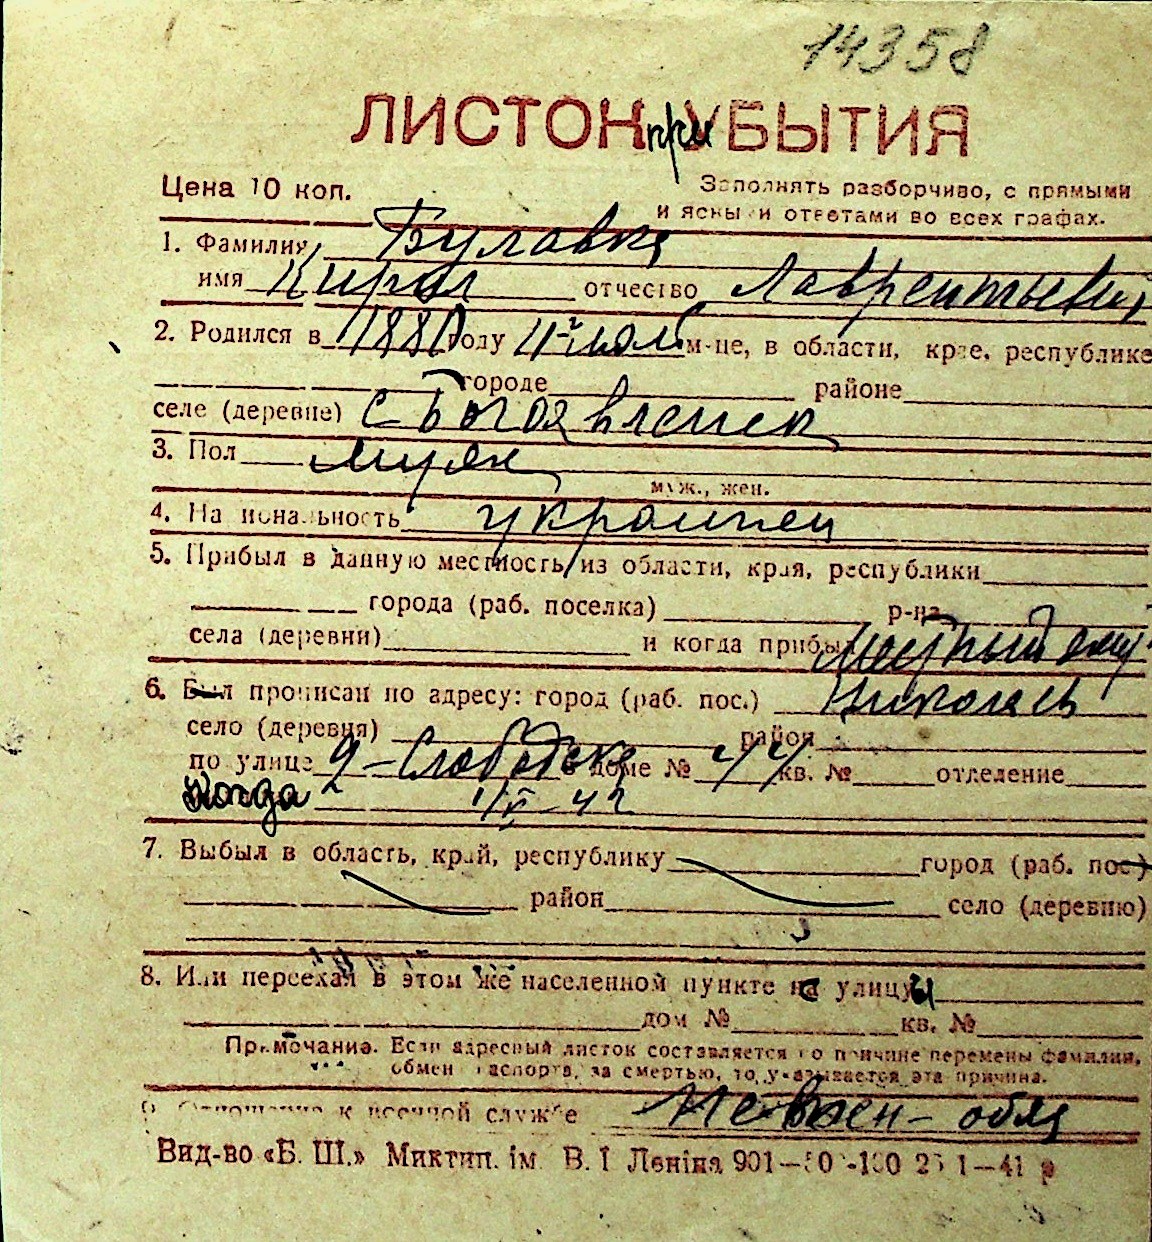 14358
ЛИСТОК при УБЫТИЯ
Цена 10 коп.
Заполнять разборчиво, с прямыми
и ясными ответами во всех графах.
1. Фамилия Булавка
имя Кирил отчество Лаврентьевич
2. Родился в 1881 году 11-2 июля м-це, в области, крае, республике
городе районе
селе (деревне) с Богоявленск
3. Пол муж
муж., жен.
4. Национальность украинец
5. Прибыл в данную местность из области, края, республики
города (раб. поселка) р-на
села (деревни) и когда прибыл Местный
6. Был прописан по адресу: город (раб. пос.) Николаев
село (деревня) район
по улице 9-Слободская в доме № 44 кв. № отделение
Когда 42
7. Выбыл в область, край, республику город (раб. пос.)
район село (деревню)
8. Или переехал в этом же населенной пункте с улицы
дом № кв. №
Примечание. Если адресный листок составляется по причине перемены фамилии,
обмен паспорта, за смертью, то указывается эта причина.
9. Отношение к военной службе Невоен-обяз
Вид-во «Б. Ш.» Миктип. ім. В. І Леніна 901— 25 1—41 р